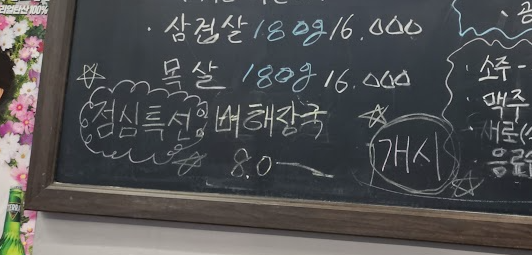 · 삼겹살 180g 16.000
목살 180g 16.000
점심특선 뼈해장국
8.0
개시
· 소주 -
· 맥주
새로
음료